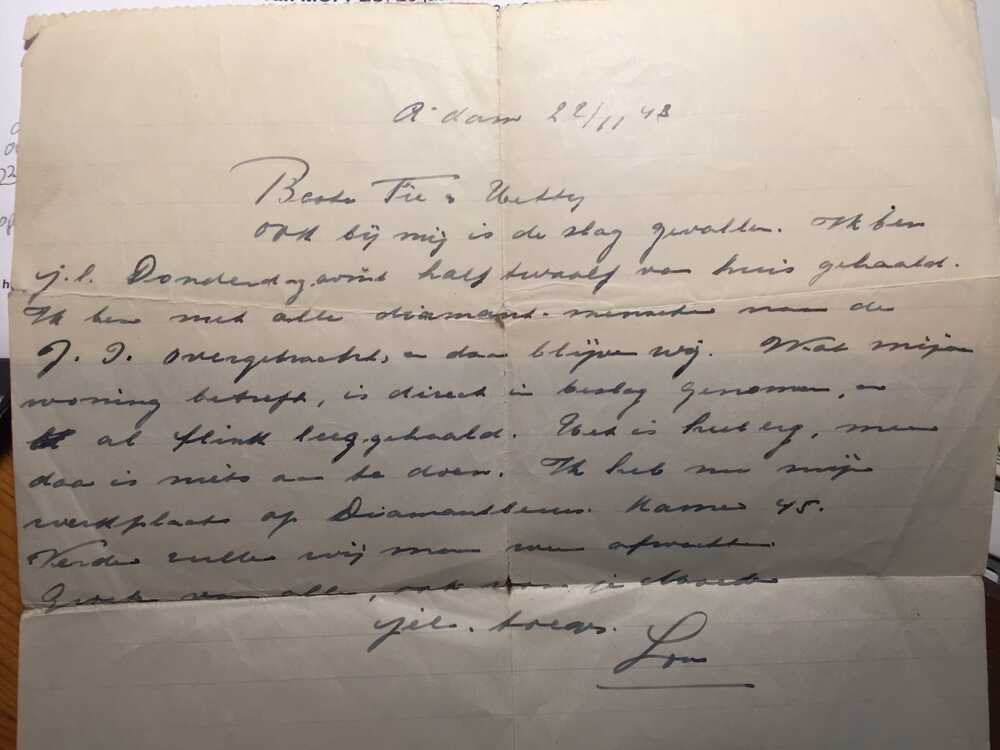 A'dam 22/11 43
Beste Fie & Hetty
Ook bij mij is de slag gevallen. Ik ben
j.l. Donderdagavond half twaalf van huis gehaald.
Ik ben met alle diamant-menschen naar de
J. I. overgebracht, en daar blijven wij. Wat mijn
woning betreft, is direct in beslag genomen, en
al flink leeggehaald. Het is heel erg, maar
daar is niets aan te doen. Ik heb nu mijn
werkplaats op Diamantbeurs. Kamer 45.
Verder zullen wij maar weer afwachten.
Groeten van allen, ook van je Moeder
Lou